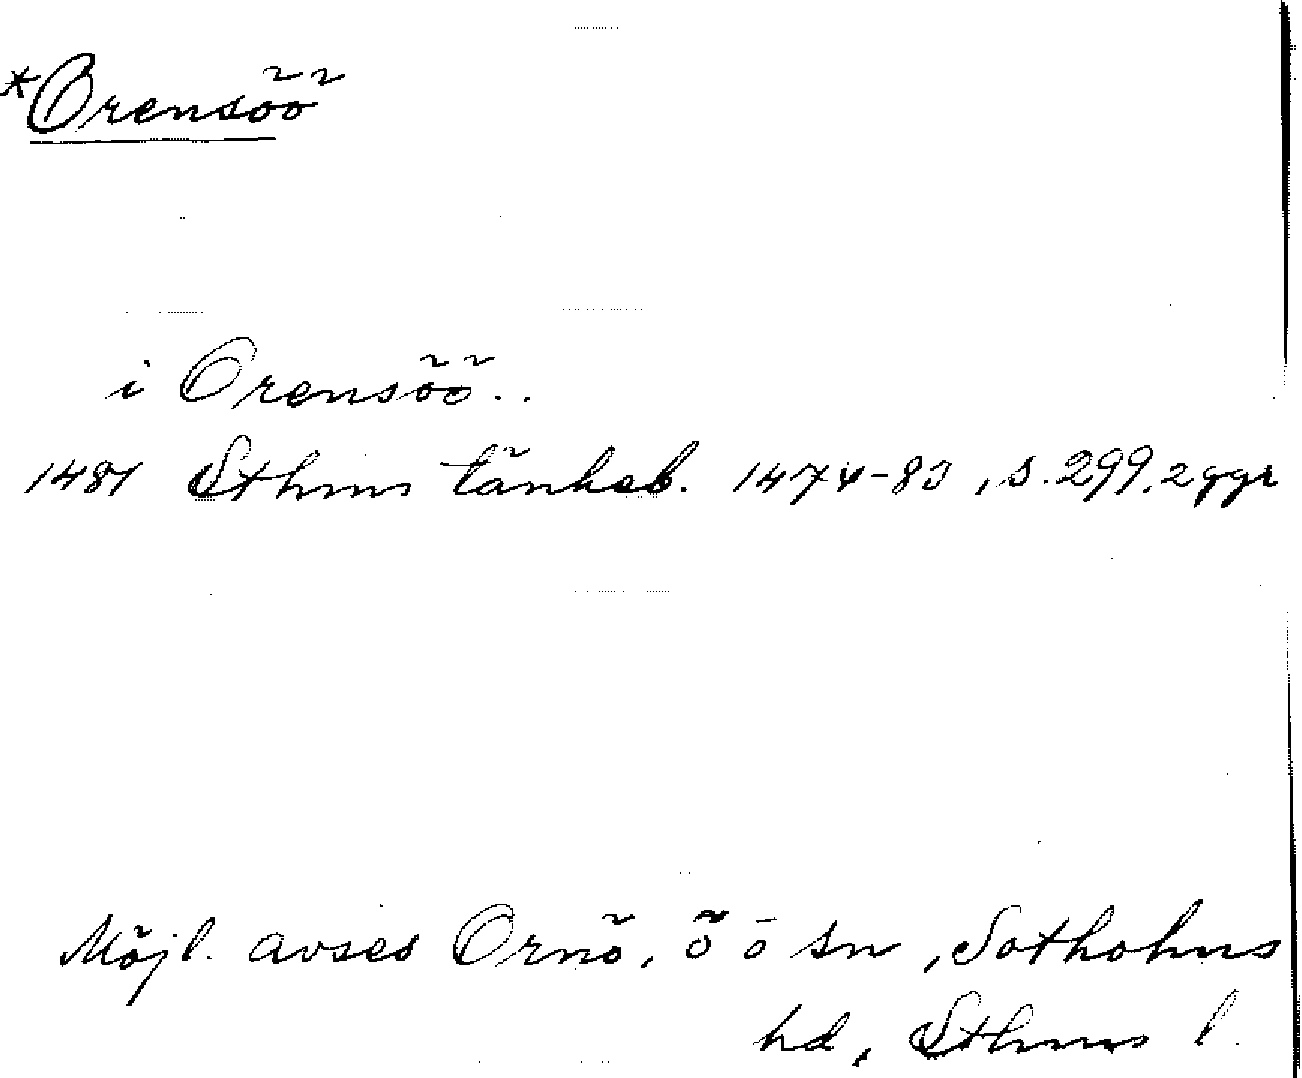 *Orensöö
i Orensöö..
1481 Sthms tänkeb. 1474-83, s. 299, 2 ggr
Möjl. avses Ornö, ö o sn, Sotholms
hd, Sthms l.